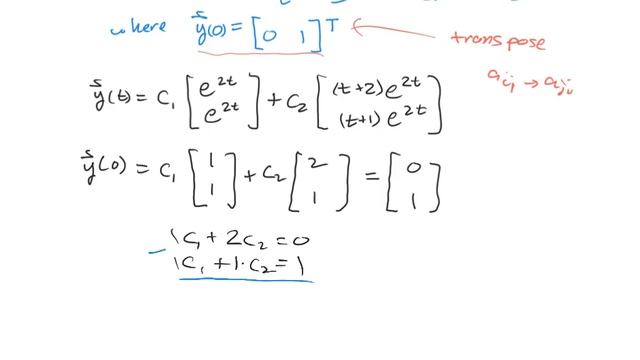 where y⃗(0) = [0 1]ᵀ
transpose
aᵢⱼ → aⱼᵢ
y⃗(t) = C₁ [e^{2t}; e^{2t}] + C₂ [(t+2)e^{2t}; (t+1)e^{2t}]
y⃗(0) = C₁ [1; 1] + C₂ [2; 1] = [0; 1]
1C₁ + 2C₂ = 0
– 1C₁ + 1·C₂ = 1